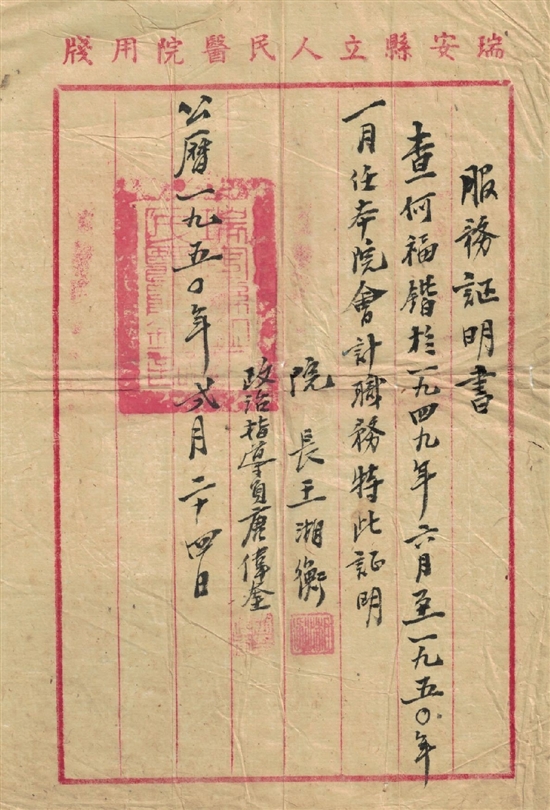 瑞安縣立人民醫院用牋
服務証明書
查何福鍇於一九四九年六月至一九五〇年
一月任本院會計職務特此証明
院長王湘衡
政治指導員唐偉奎
公曆一九五〇年弍月二十四日